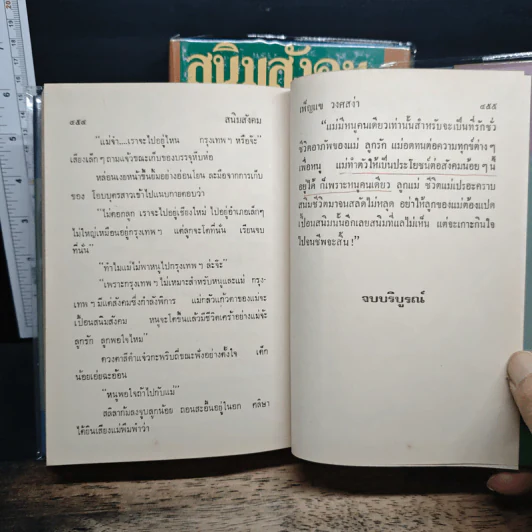 สนิมสังคม
๔๕๔ สนิมสังคม
"แม่จ๋า...เราจะไปอยู่ไหน กรุงเทพฯ หรือจ๊ะ"
เสียงเล็กๆ ถามแจ้วขณะเก็บของบรรจุหีบห่อ
หล่อนเงยหน้าขึ้นยิ้มอย่างอ่อนโยน ละมือจากการเก็บ
ของ โอบบุตรสาวเข้าไปแนบกายตอบว่า
"ไม่ดอกลูก เราจะไปอยู่เชียงใหม่ ไปอยู่อำเภอเล็กๆ
ไม่ใหญ่เหมือนอยู่กรุงเทพฯ แต่ลูกจะโตที่นั่น เรียนจบ
ที่นั่น"
"ทำไมแม่ไม่พาหนูไปกรุงเทพฯ ล่ะจ๊ะ"
"เพราะกรุงเทพฯ ไม่เหมาะสำหรับหนูและแม่ กรุง-
เทพฯ มีแต่สังคมซึ่งกำลังพิการ แม่กลัวแก้วตาของแม่จะ
เปื้อนสนิมสังคม หนูจะโตขึ้นแล้วมีชีวิตเศร้าอย่างแม่จ้ะ
ลูกรัก ลูกพอใจไหม"
ดวงตาสีดำแจ๋วกะพริบถี่ขณะฟังอย่างตั้งใจ เด็ก
น้อยเอ่ยฉะอ้อน
"หนูพอใจถ้าไปกับแม่"
สลิลาก้มลงจูบลูกน้อย ถอนสะอื้นอยู่ในอก คลิษา
ได้ยินเสียงแม่พึมพำว่า
เพ็ญแข วงศสง่า ๔๕๕
"แม่มีหนูคนเดียวเท่านั้นสำหรับจะเป็นที่รักชั่ว
ชีวิตอาภัพของแม่ ลูกรัก แม่อดทนต่อความทุกข์ต่างๆ
เพื่อหนู แม่ทำตัวให้เป็นประโยชน์ต่อสังคมน้อยๆ นี้
อยู่ได้ ก็เพราะหนูคนเดียว ลูกแม่ ชีวิตแม่เปรอะคราบ
สนิมชีวิตมาจนสลัดไม่หลุด อย่าให้ลูกของแม่ต้องแปด
เปื้อนสนิมนั้นอีกเลยสนิมที่แลไม่เห็น แต่จะเกาะกินใจ
ไปจนชีพจะสิ้น!"
จบบริบูรณ์